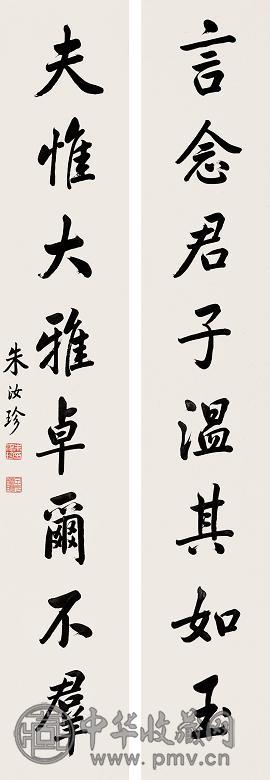 言念君子溫其如玉
夫惟大雅卓爾不羣
朱汝珍
中华收藏网
www.pmv.cn